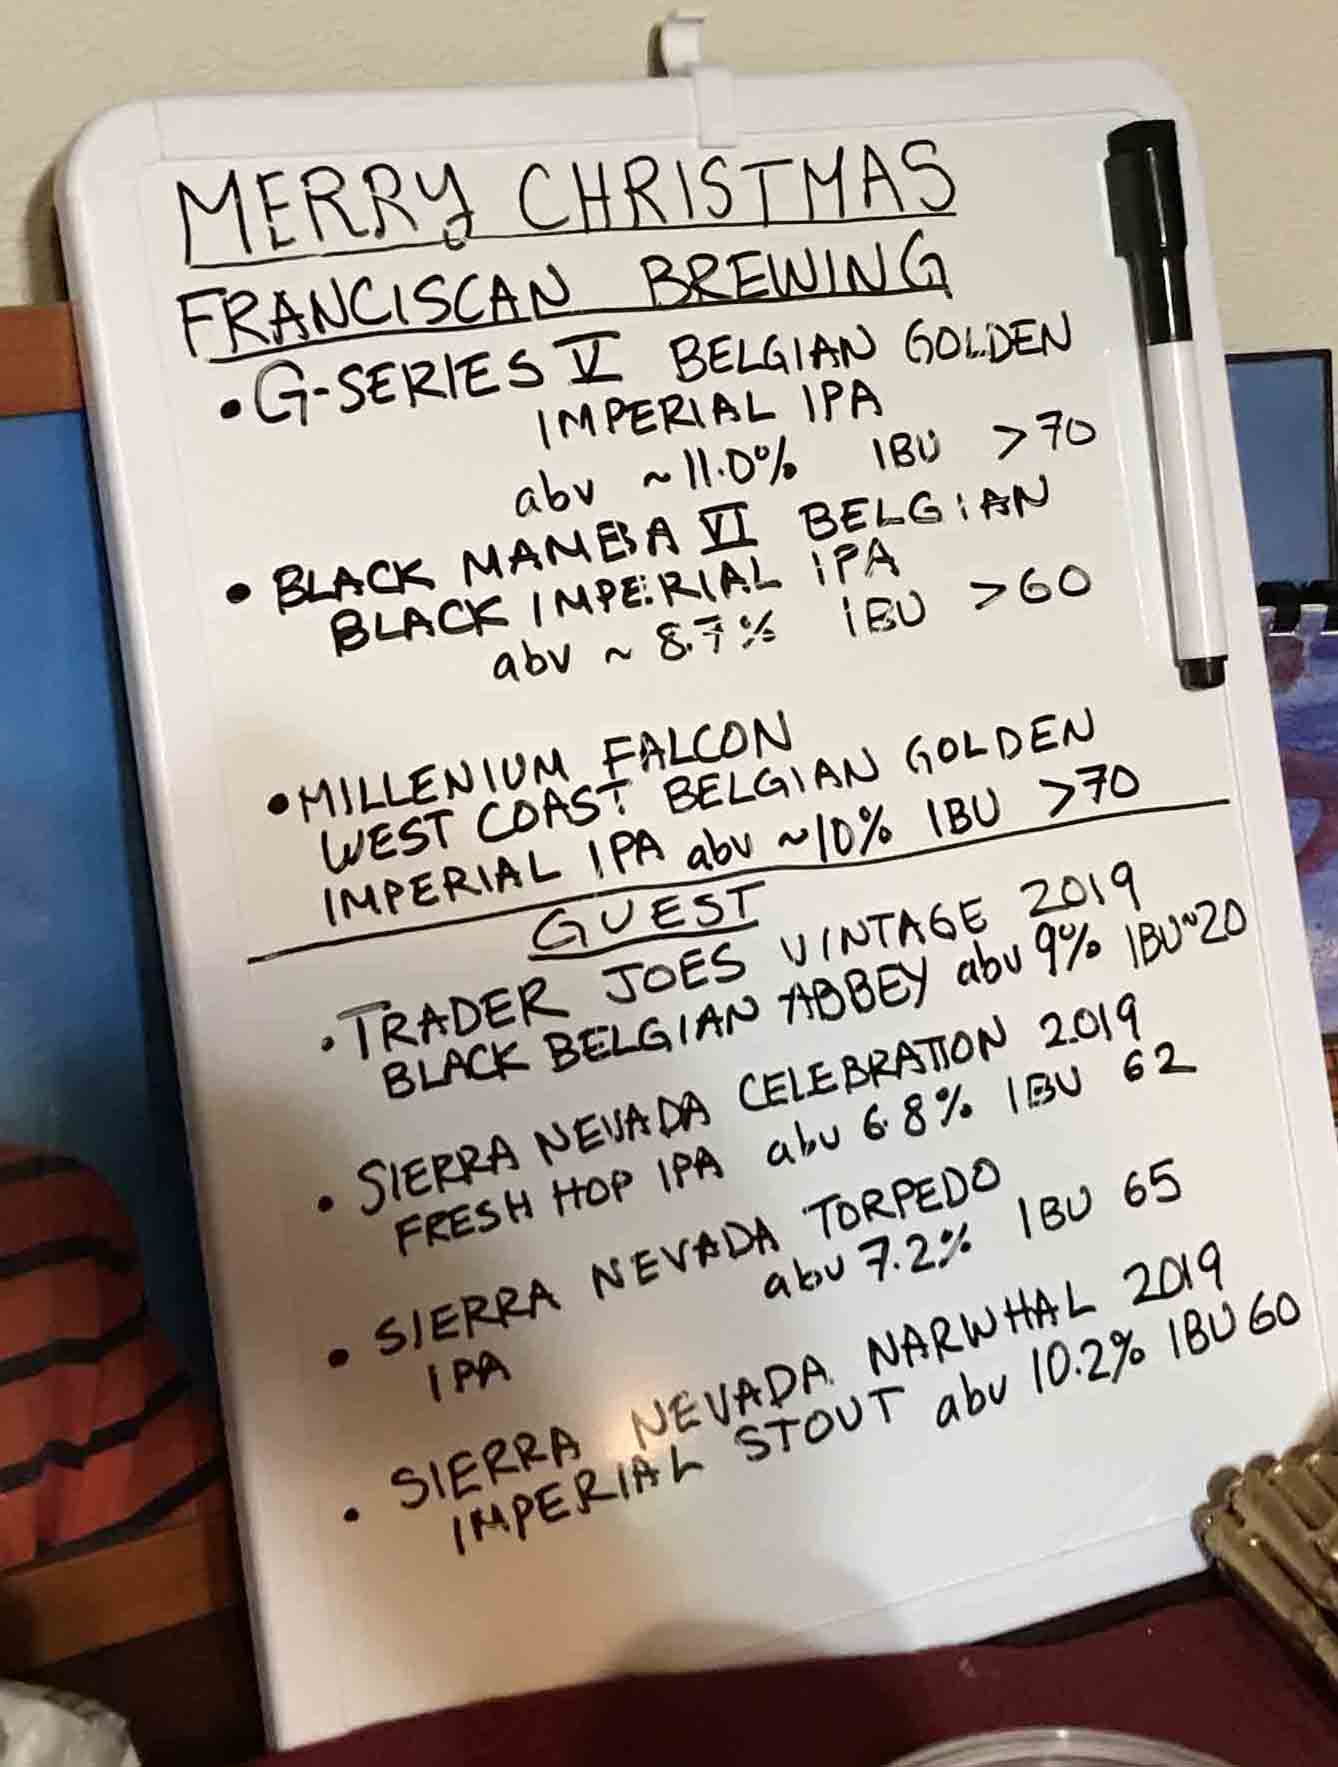 MERRY CHRISTMAS
FRANCISCAN BREWING
• G-SERIES V BELGIAN GOLDEN
IMPERIAL IPA
abv ~11.0% IBU >70
• BLACK MAMBA VI BELGIAN
BLACK IMPERIAL IPA
abv ~ 8.7% IBU >60
• MILLENIUM FALCON
WEST COAST BELGIAN GOLDEN
IMPERIAL IPA abv ~10% IBU >70
GUEST
• TRADER JOES VINTAGE 2019
BLACK BELGIAN ABBEY abv 9% IBU~20
• SIERRA NEVADA CELEBRATION 2019
FRESH HOP IPA abv 6.8% IBU 62
• SIERRA NEVADA TORPEDO
IPA abv 7.2% IBU 65
• SIERRA NEVADA NARWHAL 2019
IMPERIAL STOUT abv 10.2% IBU 60